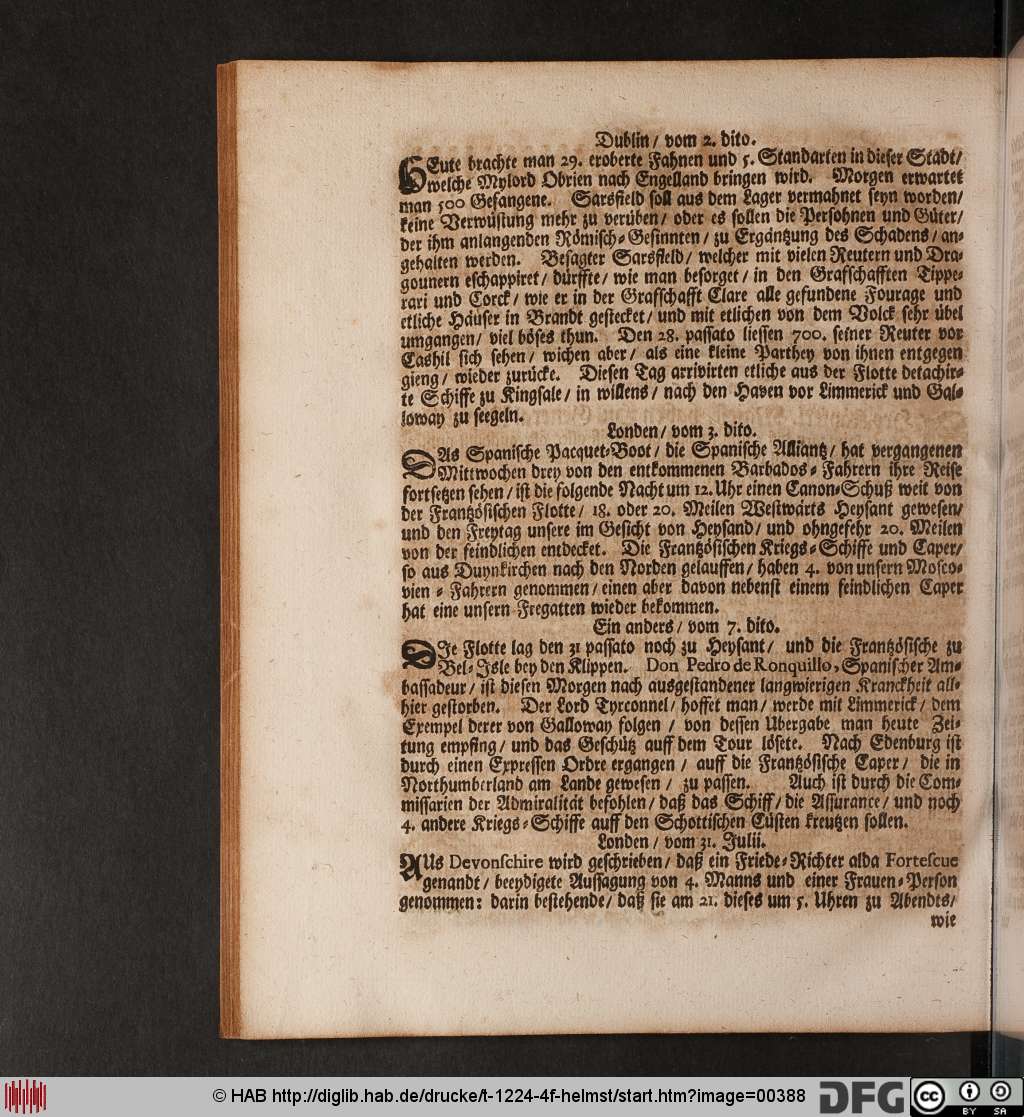 Dublin / vom 2. dito.
HEute brachte man 29. eroberte Fahnen und 5. Standarten in dieser Stadt /
welche Mylord Obrien nach Engelland bringen wird. Morgen erwartet
man 500 Gefangene. Sarsfield soll aus dem Lager vermahnet seyn worden /
keine Verwüstung mehr zu verüben / oder es sollen die Persohnen und Güter /
der ihm anlangenden Römisch-Gesinnten / zu Ergäntzung des Schadens / an-
gehalten werden. Besagter Sarsfield / welcher mit vielen Reutern und Dra-
gounern eschappiret / dürffte / wie man besorget / in den Grafschafften Tippe-
rari und Corck / wie er in der Grafschafft Clare alle gefundene Fourage und
etliche Häuser in Brandt gestecket / und mit etlichen von dem Volck sehr übel
umgangen / viel böses thun. Den 28. passato liessen 700. seiner Reuter vor
Cashil sich sehen / wichen aber / als eine kleine Parthey von ihnen entgegen
gieng / wieder zurücke. Diesen Tag arrivirten etliche aus der Flotte detachir-
te Schiffe zu Kingsale / in willens / nach den Haven vor Limmerick und Gal-
loway zu seegeln.
Londen / vom 3. dito.
DAs Spanische Pacquet-Boot / die Spanische Alliantz / hat vergangenen
Mittwochen drey von den entkommenen Barbados-Fahrern ihre Reise
fortsetzen sehen / ist die folgende Nacht um 12. Uhr einen Canon-Schuß weit von
der Frantzösischen Flotte / 18. oder 20. Meilen Westwärts Heysant gewesen /
und den Freytag unsere im Gesicht von Heysand / und ohngefehr 20. Meilen
von der feindlichen entdecket. Die Frantzösischen Kriegs-Schiffe und Caper /
so aus Duynkirchen nach den Norden gelauffen / haben 4. von unsern Mosco-
vien-Fahrern genommen / einen aber davon nebenst einem feindlichen Caper
hat eine unsern Fregatten wieder bekommen.
Ein anders / vom 7. dito.
DIe Flotte lag den 31 passato noch zu Heysant / und die Frantzösische zu
Bel-Isle bey den Klippen. Don Pedro de Ronquillo, Spanischer Am-
bassadeur / ist diesen Morgen nach ausgestandener langwierigen Kranckheit all-
hier gestorben. Der Lord Tyrconnel / hoffet man / werde mit Limmerick / dem
Exempel derer von Galloway folgen / von dessen Ubergabe man heute Zei-
tung empfing / und das Geschütz auff dem Tour lösete. Nach Edenburg ist
durch einen Expressen Ordre ergangen / auff die Frantzösische Caper / die in
Northumberland am Lande gewesen / zu passen. Auch ist durch die Com-
missarien der Admiralität befohlen / daß das Schiff / die Assurance / und noch
4. andere Kriegs-Schiffe auff den Schottischen Cüsten kreutzen sollen.
Londen / vom 31. Julii.
AUs Devonschire wird geschrieben / daß ein Friede-Richter alda Fortescue
genandt / beeydigete Aussagung von 4. Manns und einer Frauen-Person
genommen: darin bestehende / daß sie am 21. dieses um 5. Uhren zu Abendts /
wie
© HAB http://diglib.hab.de/drucke/t-1224-4f-helmst/start.htm?image=00388
DFG
cc BY SA